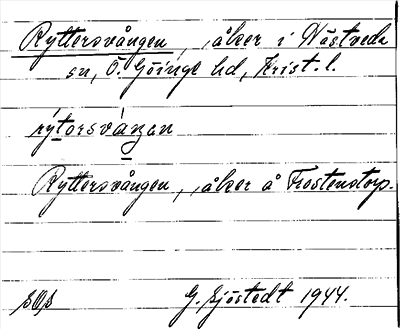 Ryttersvången, åker i Västveda
sn, Ö. Göinge hd, Krist. l.
rýtorsváŋan
Ryttersvången, åker å Frostentorp.
G. Sjöstedt 1944.